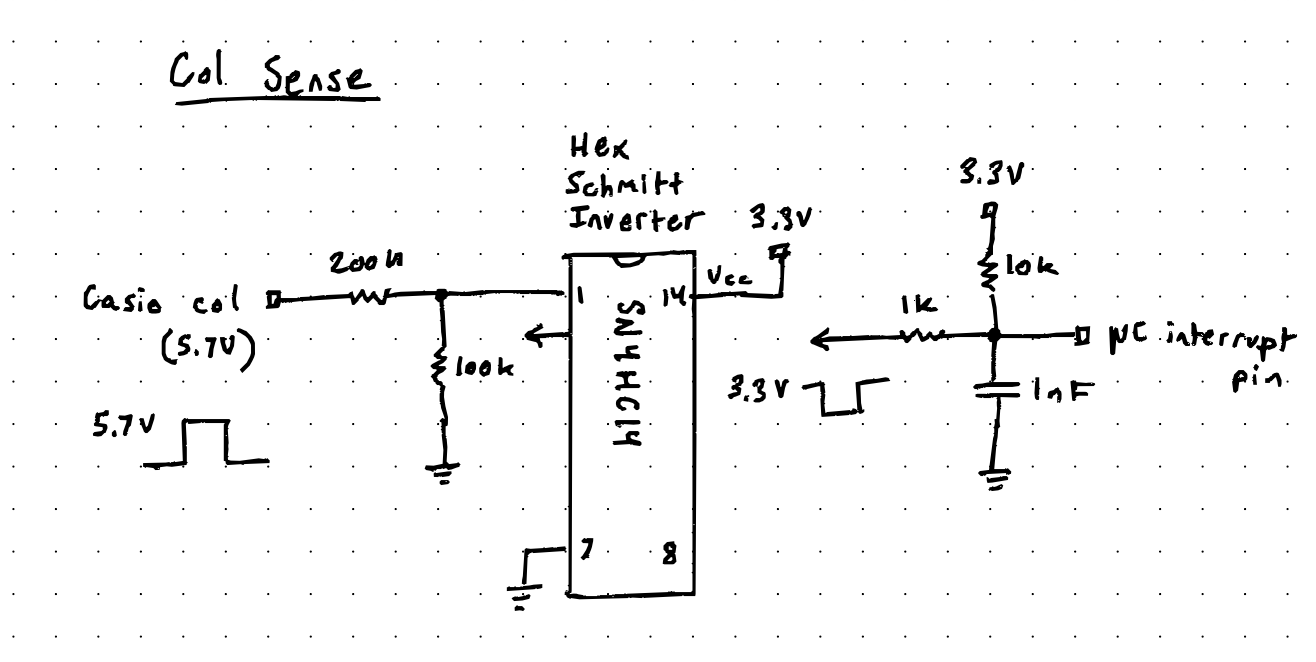 Col Sense
Hex
Schmitt
Inverter
3.3V
3.3V
200k
10k
Vcc
Casio col
1
14
1k
(5.7V)
µC interrupt
pin
100k
SN74HC14
3.3V
1nF
5.7V
7
8